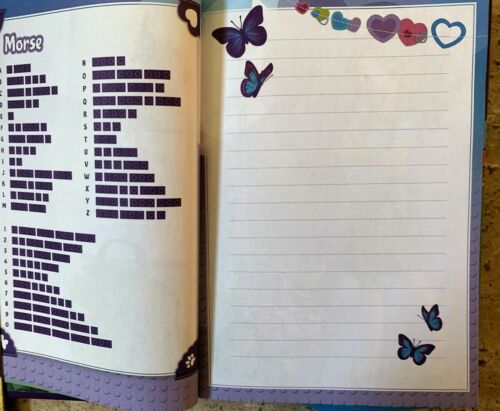 Morse
A
B
C
D
E
F
G
H
I
J
K
L
M
N
O
P
Q
R
S
T
U
V
W
X
Y
Z
1
2
3
4
5
6
7
8
9
0